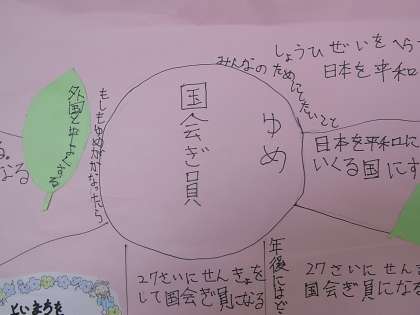 しょうひぜいをへらす
日本を平和
みんなのためにしたいこと
国会ぎ員
ゆめ
もしもゆめがかなったら
外国となかよくする
る。
なる
日本を平和に
いくる国にす
27さいにせんきょを
して国会ぎ員になる
年後にはど
27さいにせんき
国会ぎ員になる
よいまちを